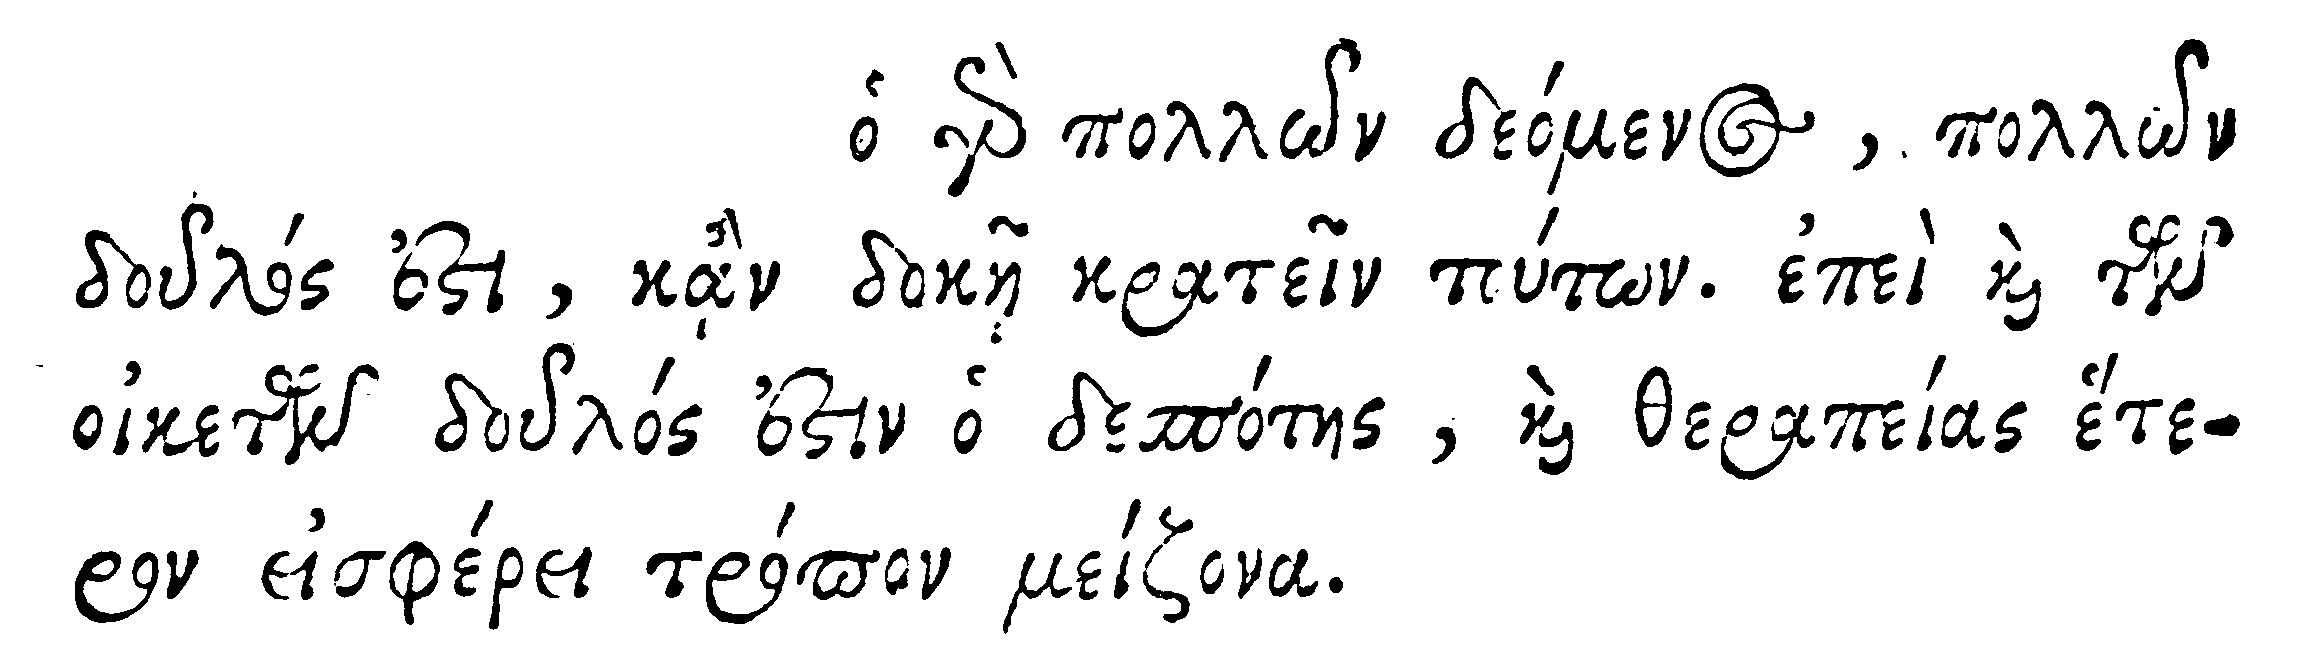 ὁ γὰρ πολλῶν δεόμενος, πολλῶν
δοῦλός ἐστι, κᾂν δοκῇ κρατεῖν τούτων. ἐπεὶ καὶ τῶν
οἰκετῶν δοῦλός ἐστιν ὁ δεσπότης, καὶ θεραπείας ἕτε-
ρον εἰσφέρει τρόπον μείζονα.